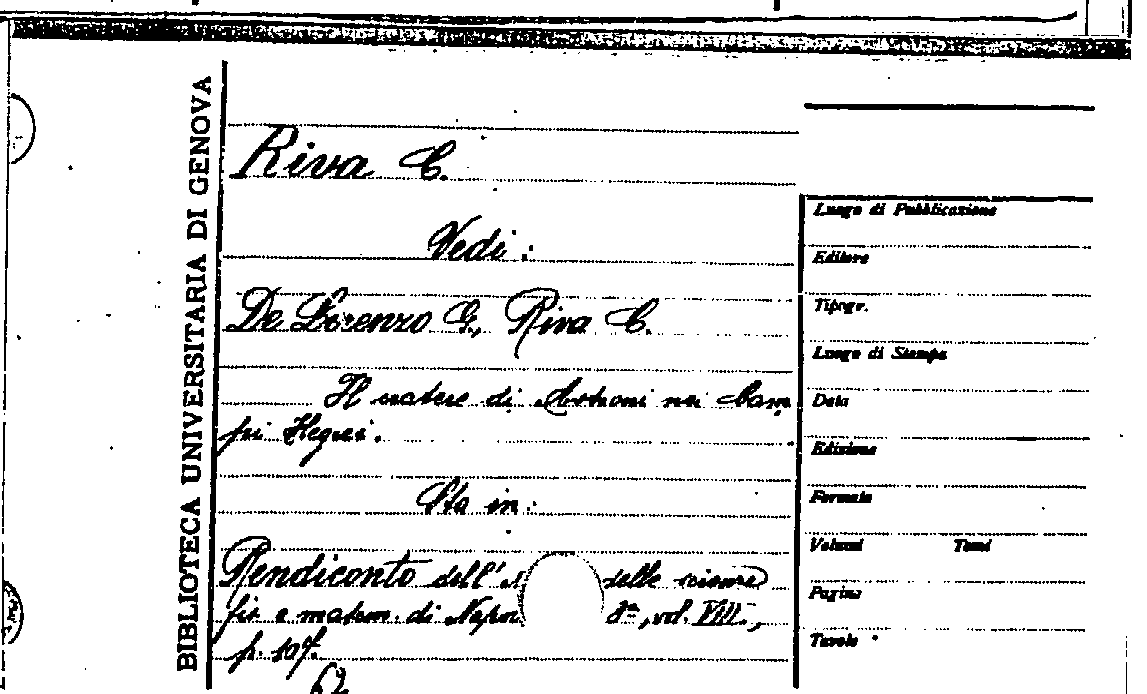 BIBLIOTECA UNIVERSITARIA DI GENOVA
Riva C.
Vedi:
De Lorenzo G., Riva C.
Il cratere di Astroni nei Cam
pi Flegrei.
Sta in:
Rendiconto dell'A delle scienze
fis. e matem. di Napo 3ª, vol. VIII.,
p. 107.
62
Luogo di Pubblicazione
Editore
Tipogr.
Luogo di Stampa
Data
Edizione
Formato
Volumi Tomi
Pagine
Tavole